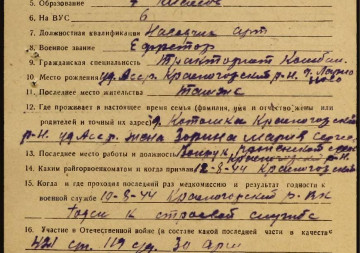 5. Образование 4 классов
6. На ВУС 6
7. Должностная квалификация Наводчик арт
8. Военное звание Ефрейтор
9. Гражданская специальность Тракторист Комбай.
10 Место рождения уд. Асср. Красногорский р-н. д.
11. Последнее место жительства также
12. Где проживает в настоящее время семья (фамилия, имя и отчество жены или
родителей и точный их адрес) д. Котомка Красногорский
р-н. уд Асс р. жена Зорина Мария Серге
13. Последнее место работы и должность
14. Каким райгорвоенкоматом и когда призван 12-8-44 Красногорский
15. Когда и где проходил последний раз медкомиссию и результат годности к
военной службе 10-8-44 Красногорский р. Вк
Годен к строевой службе
16. Участие в Отечественной войне (в составе какой последней части и в качестве
421 сп. 119 сд. 30 Арм